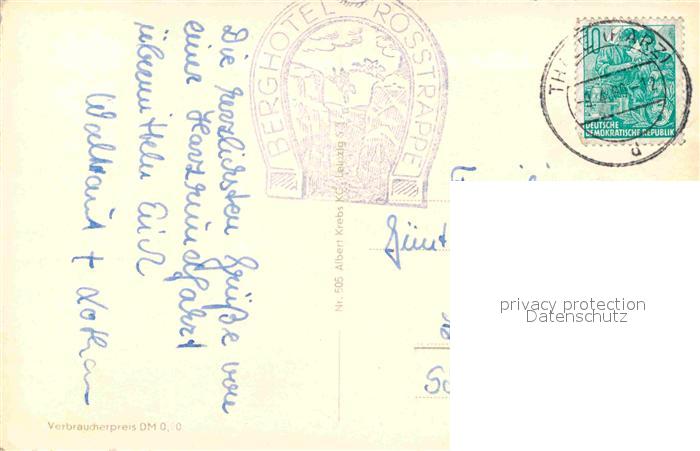 Die herzlichsten Grüße von
einer Harzrundfahrt
übermitteln Euch
Waltraut + Lothar
BERGHOTEL ROSSTRAPPE
Nr. 505 Albert Krebs KG. Leipzig
10
DEUTSCHE
DEMOKRATISCHE REPUBLIK
(HARZ)
d
Günt
privacy protection
Datenschutz
Verbraucherpreis DM